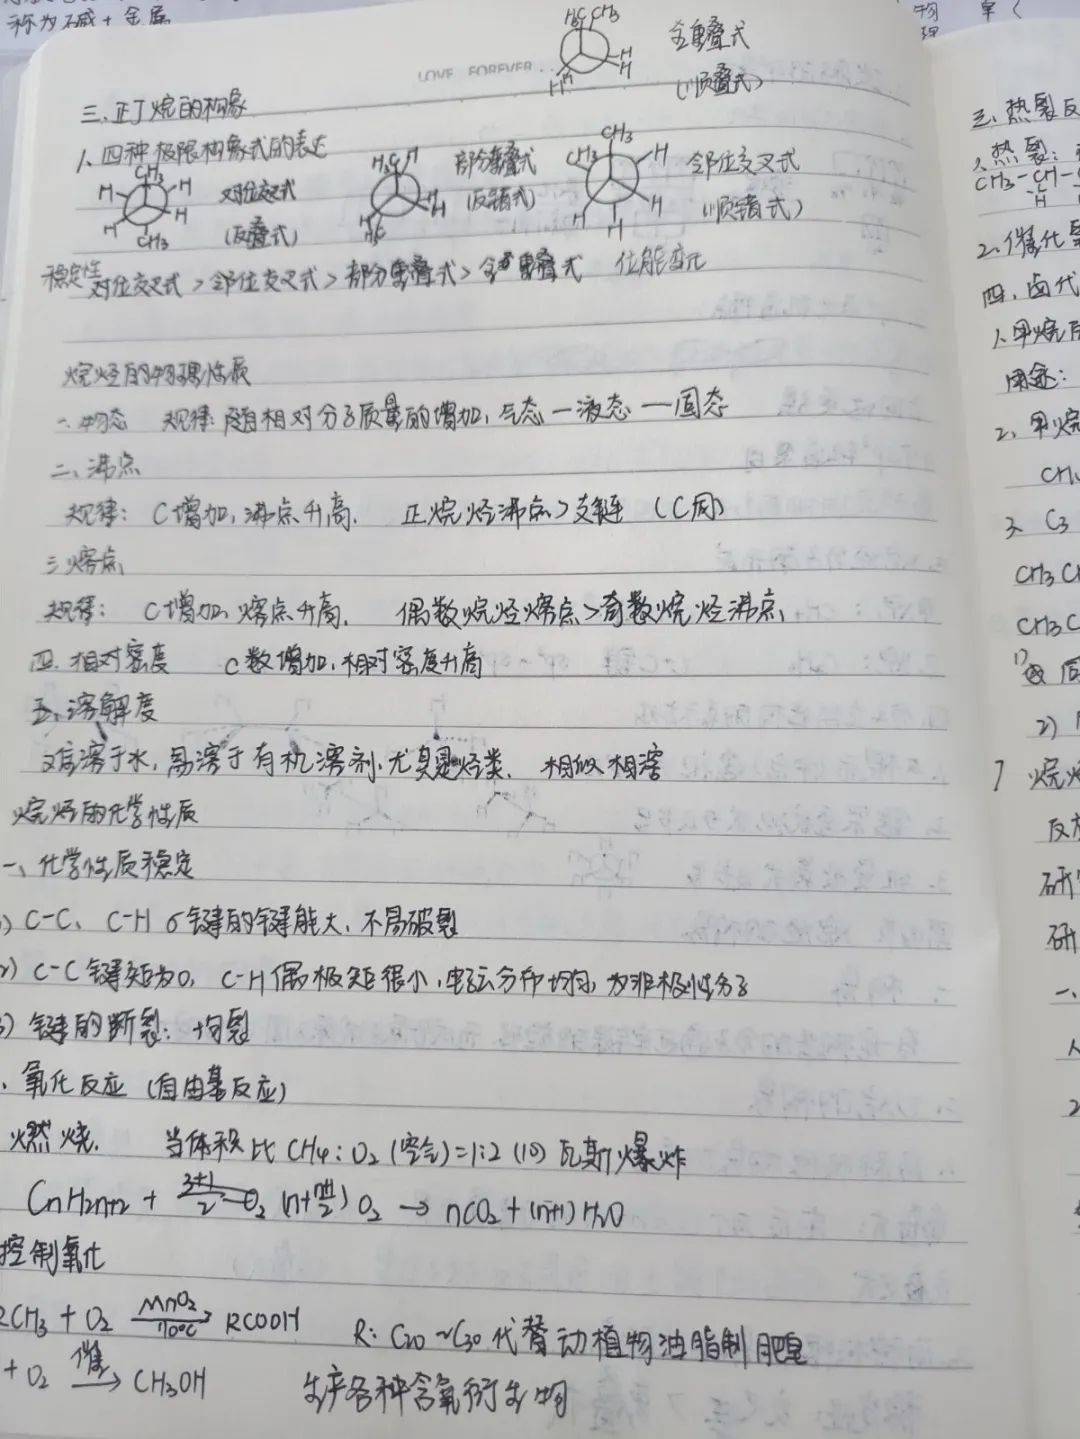 称为碱+金属
LOVE FOREVER
H₃C CH₃
全重叠式
H H
H H
(顺叠式)
三、正丁烷的构象
1、四种极限构象式的表达
CH₃ H H H H CH₃
对位交叉式
(反叠式)
H₃C H H H H₃C
部分重叠式
(反错式)
CH₃ CH₃ H H H H
邻位交叉式
(顺错式)
稳定性 对位交叉式>邻位交叉式>部分重叠式>全重叠式 位能变化
烷烃的物理性质
一、物态 规律:随相对分子质量的增加,气态—液态—固态
二、沸点
规律: C增加,沸点升高. 正烷烃沸点>支链 (C同)
三熔点
规律: C增加,熔点升高. 偶数烷烃熔点>奇数烷烃沸点
四.相对密度 C数增加,相对密度升高
五、溶解度
难溶于水,易溶于有机溶剂,尤其是烃类. 相似相溶
烷烃的化学性质
一、化学性质稳定
) C-C、C-H σ键的键能大,不易破裂
2) C-C键矩为0, C-H偶极矩很小,电子云分布均匀,为非极性分子
3) 键的断裂:均裂
、氧化反应(自由基反应)
燃烧. 当体积比CH₄:O₂(空气)=1:2(10)瓦斯爆炸
CnH2n+2 + (n+ n+1/2) O₂ → nCO₂+(n+1)H₂O
控制氧化
RCH₃ + O₂ MnO₂ 110℃ → RCOOH R: C₂₀~C₃₀代替动植物油脂制肥皂
+ O₂ 催 → CH₃OH 生产各种含氧衍生物
物
理
三、热裂反
1、热裂:
CH₃-CH-
H
2、催化裂
四、卤代
1、甲烷
用途:
2、甲烷
CH₄
3、C3
CH₃CH
CH₃C
1)
2)
烷烃
反应
研究
研
一、
2